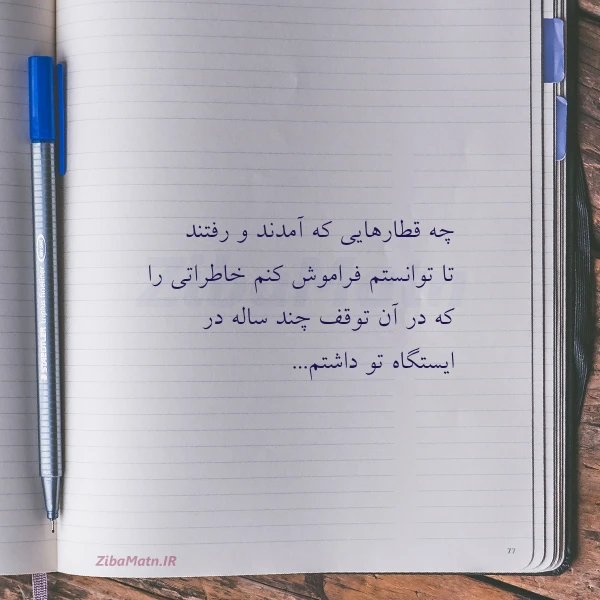 چه قطارهایی که آمدند و رفتند
تا توانستم فراموش کنم خاطراتی را
که در آن توقف چند ساله در
ایستگاه تو داشتم...
77
ZibaMatn.IR